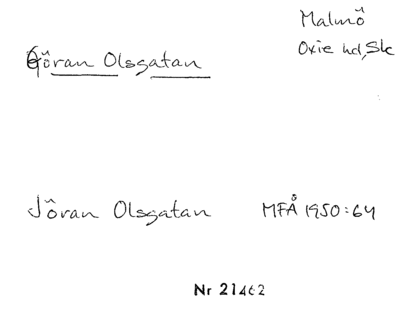 Malmö
Oxie hd, Sk
Göran Olsgatan
Jöran Olsgatan MFÅ 1950:64
Nr 21462